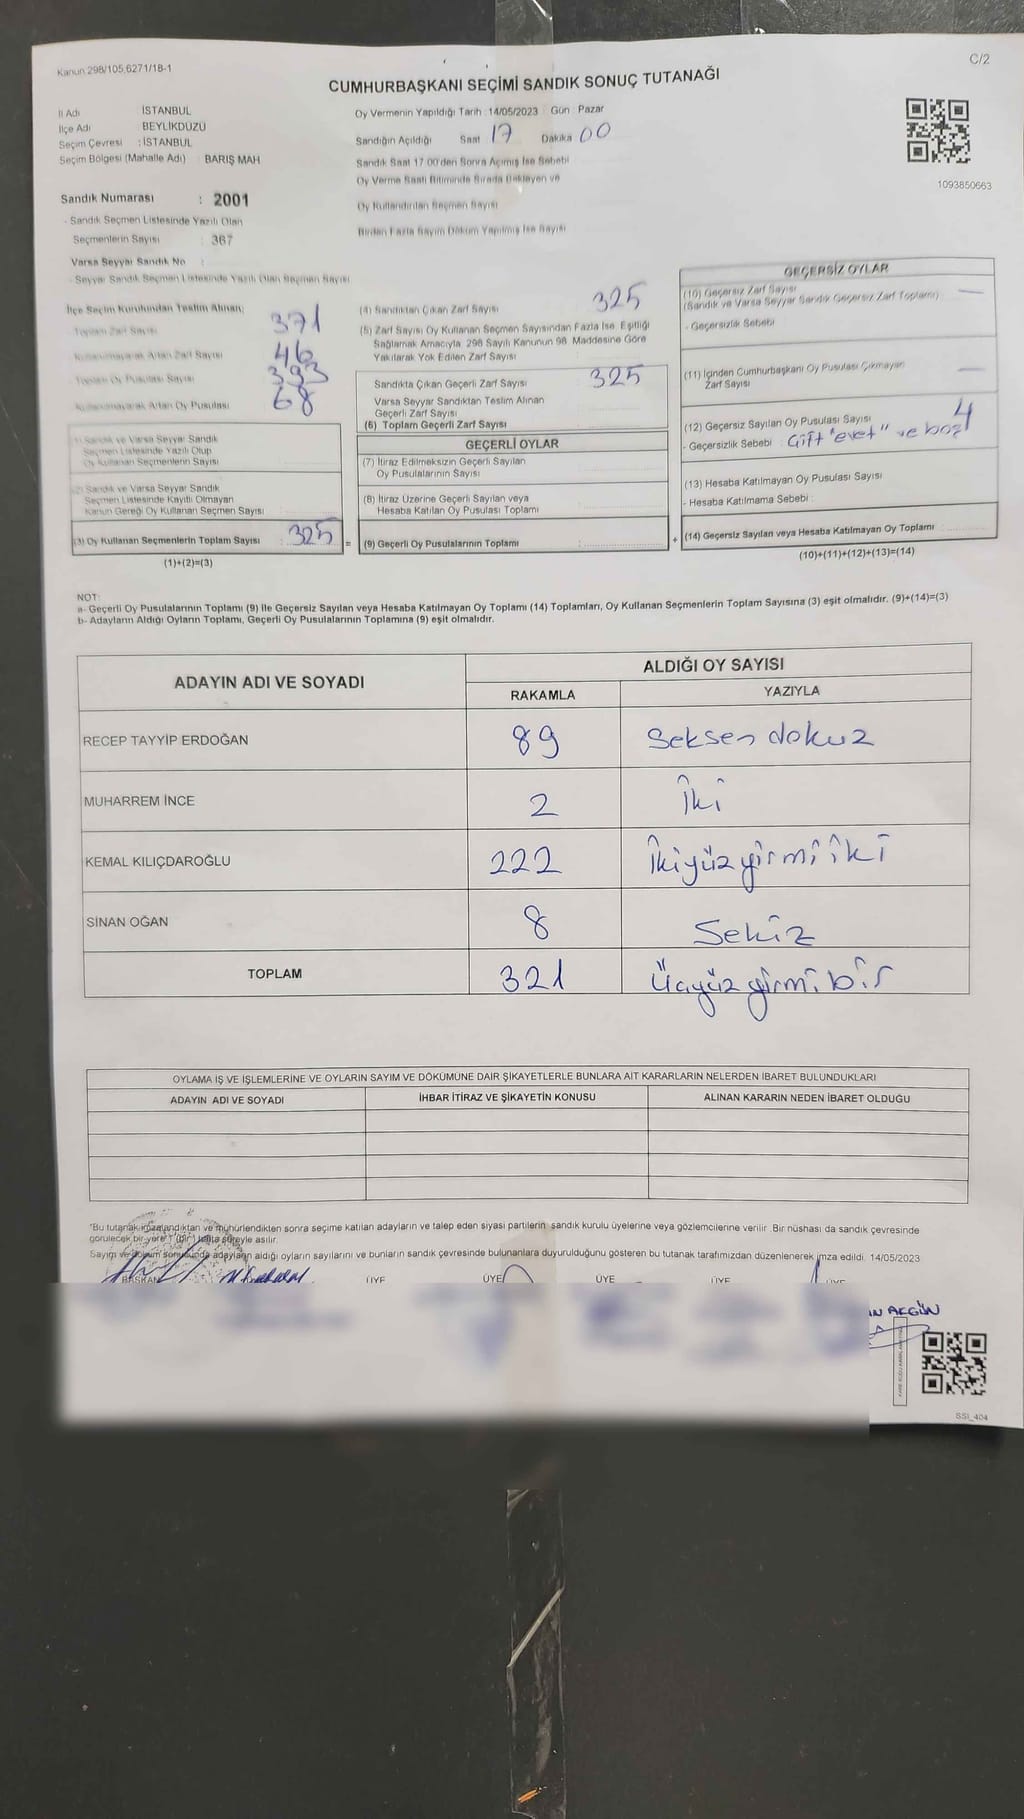 Kanun 298/105,6271/18-1
C/2
CUMHURBAŞKANI SEÇİMİ SANDIK SONUÇ TUTANAĞI
İl Adı İSTANBUL
İlçe Adı BEYLİKDÜZÜ
Seçim Çevresi : İSTANBUL
Seçim Bölgesi (Mahalle Adı) BARIŞ MAH
Oy Vermenin Yapıldığı Tarih : 14/05/2023 Gün : Pazar
Sandığın Açıldığı Saat 17 Dakika 00
Sandık Saat 17 00'den Sonra Açılmış İse Sebebi
Oy Verme Saati Bitiminde Sırada Bekleyen ve
Oy Kullandırılan Seçmen Sayısı
Birden Fazla Sayım Döküm Yapılmış İse Sayısı
1093850663
Sandık Numarası : 2001
- Sandık Seçmen Listesinde Yazılı Olan
Seçmenlerin Sayısı : 367
Varsa Seyyar Sandık No :
- Seyyar Sandık Seçmen Listesinde Yazılı Olan Seçmen Sayısı
İlçe Seçim Kurulundan Teslim Alınan;
Toplam Zarf Sayısı 371
Kullanılmayarak Artan Zarf Sayısı 46
Toplam Oy Pusulası Sayısı 393
Kullanılmayarak Artan Oy Pusulası 68
(1) Sandık ve Varsa Seyyar Sandık
Seçmen Listesinde Yazılı Olup
Oy Kullanan Seçmenlerin Sayısı
(2) Sandık ve Varsa Seyyar Sandık
Seçmen Listesinde Kayıtlı Olmayan
Kanun Gereği Oy Kullanan Seçmen Sayısı
(3) Oy Kullanan Seçmenlerin Toplam Sayısı : 325
(1)+(2)=(3)
(4) Sandıktan Çıkan Zarf Sayısı 325
(5) Zarf Sayısı Oy Kullanan Seçmen Sayısından Fazla İse, Eşitliği
Sağlamak Amacıyla, 298 Sayılı Kanunun 98. Maddesine Göre
Yakılarak Yok Edilen Zarf Sayısı
Sandıkta Çıkan Geçerli Zarf Sayısı 325
Varsa Seyyar Sandıktan Teslim Alınan
Geçerli Zarf Sayısı
(6) Toplam Geçerli Zarf Sayısı
GEÇERLİ OYLAR
(7) İtiraz Edilmeksizin Geçerli Sayılan
Oy Pusulalarının Sayısı
(8) İtiraz Üzerine Geçerli Sayılan veya
Hesaba Katılan Oy Pusulası Toplamı
= (9) Geçerli Oy Pusulalarının Toplamı :
GEÇERSİZ OYLAR
(10) Geçersiz Zarf Sayısı —
(Sandık ve Varsa Seyyar Sandık Geçersiz Zarf Toplamı)
- Geçersizlik Sebebi
(11) İçinden Cumhurbaşkanı Oy Pusulası Çıkmayan —
Zarf Sayısı
(12) Geçersiz Sayılan Oy Pusulası Sayısı 4
- Geçersizlik Sebebi : Çift "evet" ve boş
(13) Hesaba Katılmayan Oy Pusulası Sayısı
- Hesaba Katılmama Sebebi :
+ (14) Geçersiz Sayılan veya Hesaba Katılmayan Oy Toplamı
(10)+(11)+(12)+(13)=(14)
NOT:
a- Geçerli Oy Pusulalarının Toplamı (9) ile Geçersiz Sayılan veya Hesaba Katılmayan Oy Toplamı (14) Toplamları, Oy Kullanan Seçmenlerin Toplam Sayısına (3) eşit olmalıdır. (9)+(14)=(3)
b- Adayların Aldığı Oyların Toplamı, Geçerli Oy Pusulalarının Toplamına (9) eşit olmalıdır.
ADAYIN ADI VE SOYADI
ALDIĞI OY SAYISI
RAKAMLA YAZIYLA
RECEP TAYYİP ERDOĞAN 89 Seksen dokuz
MUHARREM İNCE 2 İki
KEMAL KILIÇDAROĞLU 222 İkiyüz yirmi iki
SİNAN OĞAN 8 Sekiz
TOPLAM 321 Üçyüz yirmi bir
OYLAMA İŞ VE İŞLEMLERİNE VE OYLARIN SAYIM VE DÖKÜMÜNE DAİR ŞİKAYETLERLE BUNLARA AİT KARARLARIN NELERDEN İBARET BULUNDUKLARI
ADAYIN ADI VE SOYADI İHBAR İTİRAZ VE ŞİKAYETİN KONUSU ALINAN KARARIN NEDEN İBARET OLDUĞU
"Bu tutanak imzalandıktan ve mühürlendikten sonra seçime katılan adayların ve talep eden siyasi partilerin sandık kurulu üyelerine veya gözlemcilerine verilir. Bir nüshası da sandık çevresinde
görülecek bir yere 1 (bir) hafta süreyle asılır.
Sayım ve döküm sonucunda adayların aldığı oyların sayılarını ve bunların sandık çevresinde bulunanlara duyurulduğunu gösteren bu tutanak tarafımızdan düzenlenerek imza edildi. 14/05/2023
BAŞKAN ÜYE ÜYE ÜYE ÜYE ÜYE
AKGÜN
SSI_404